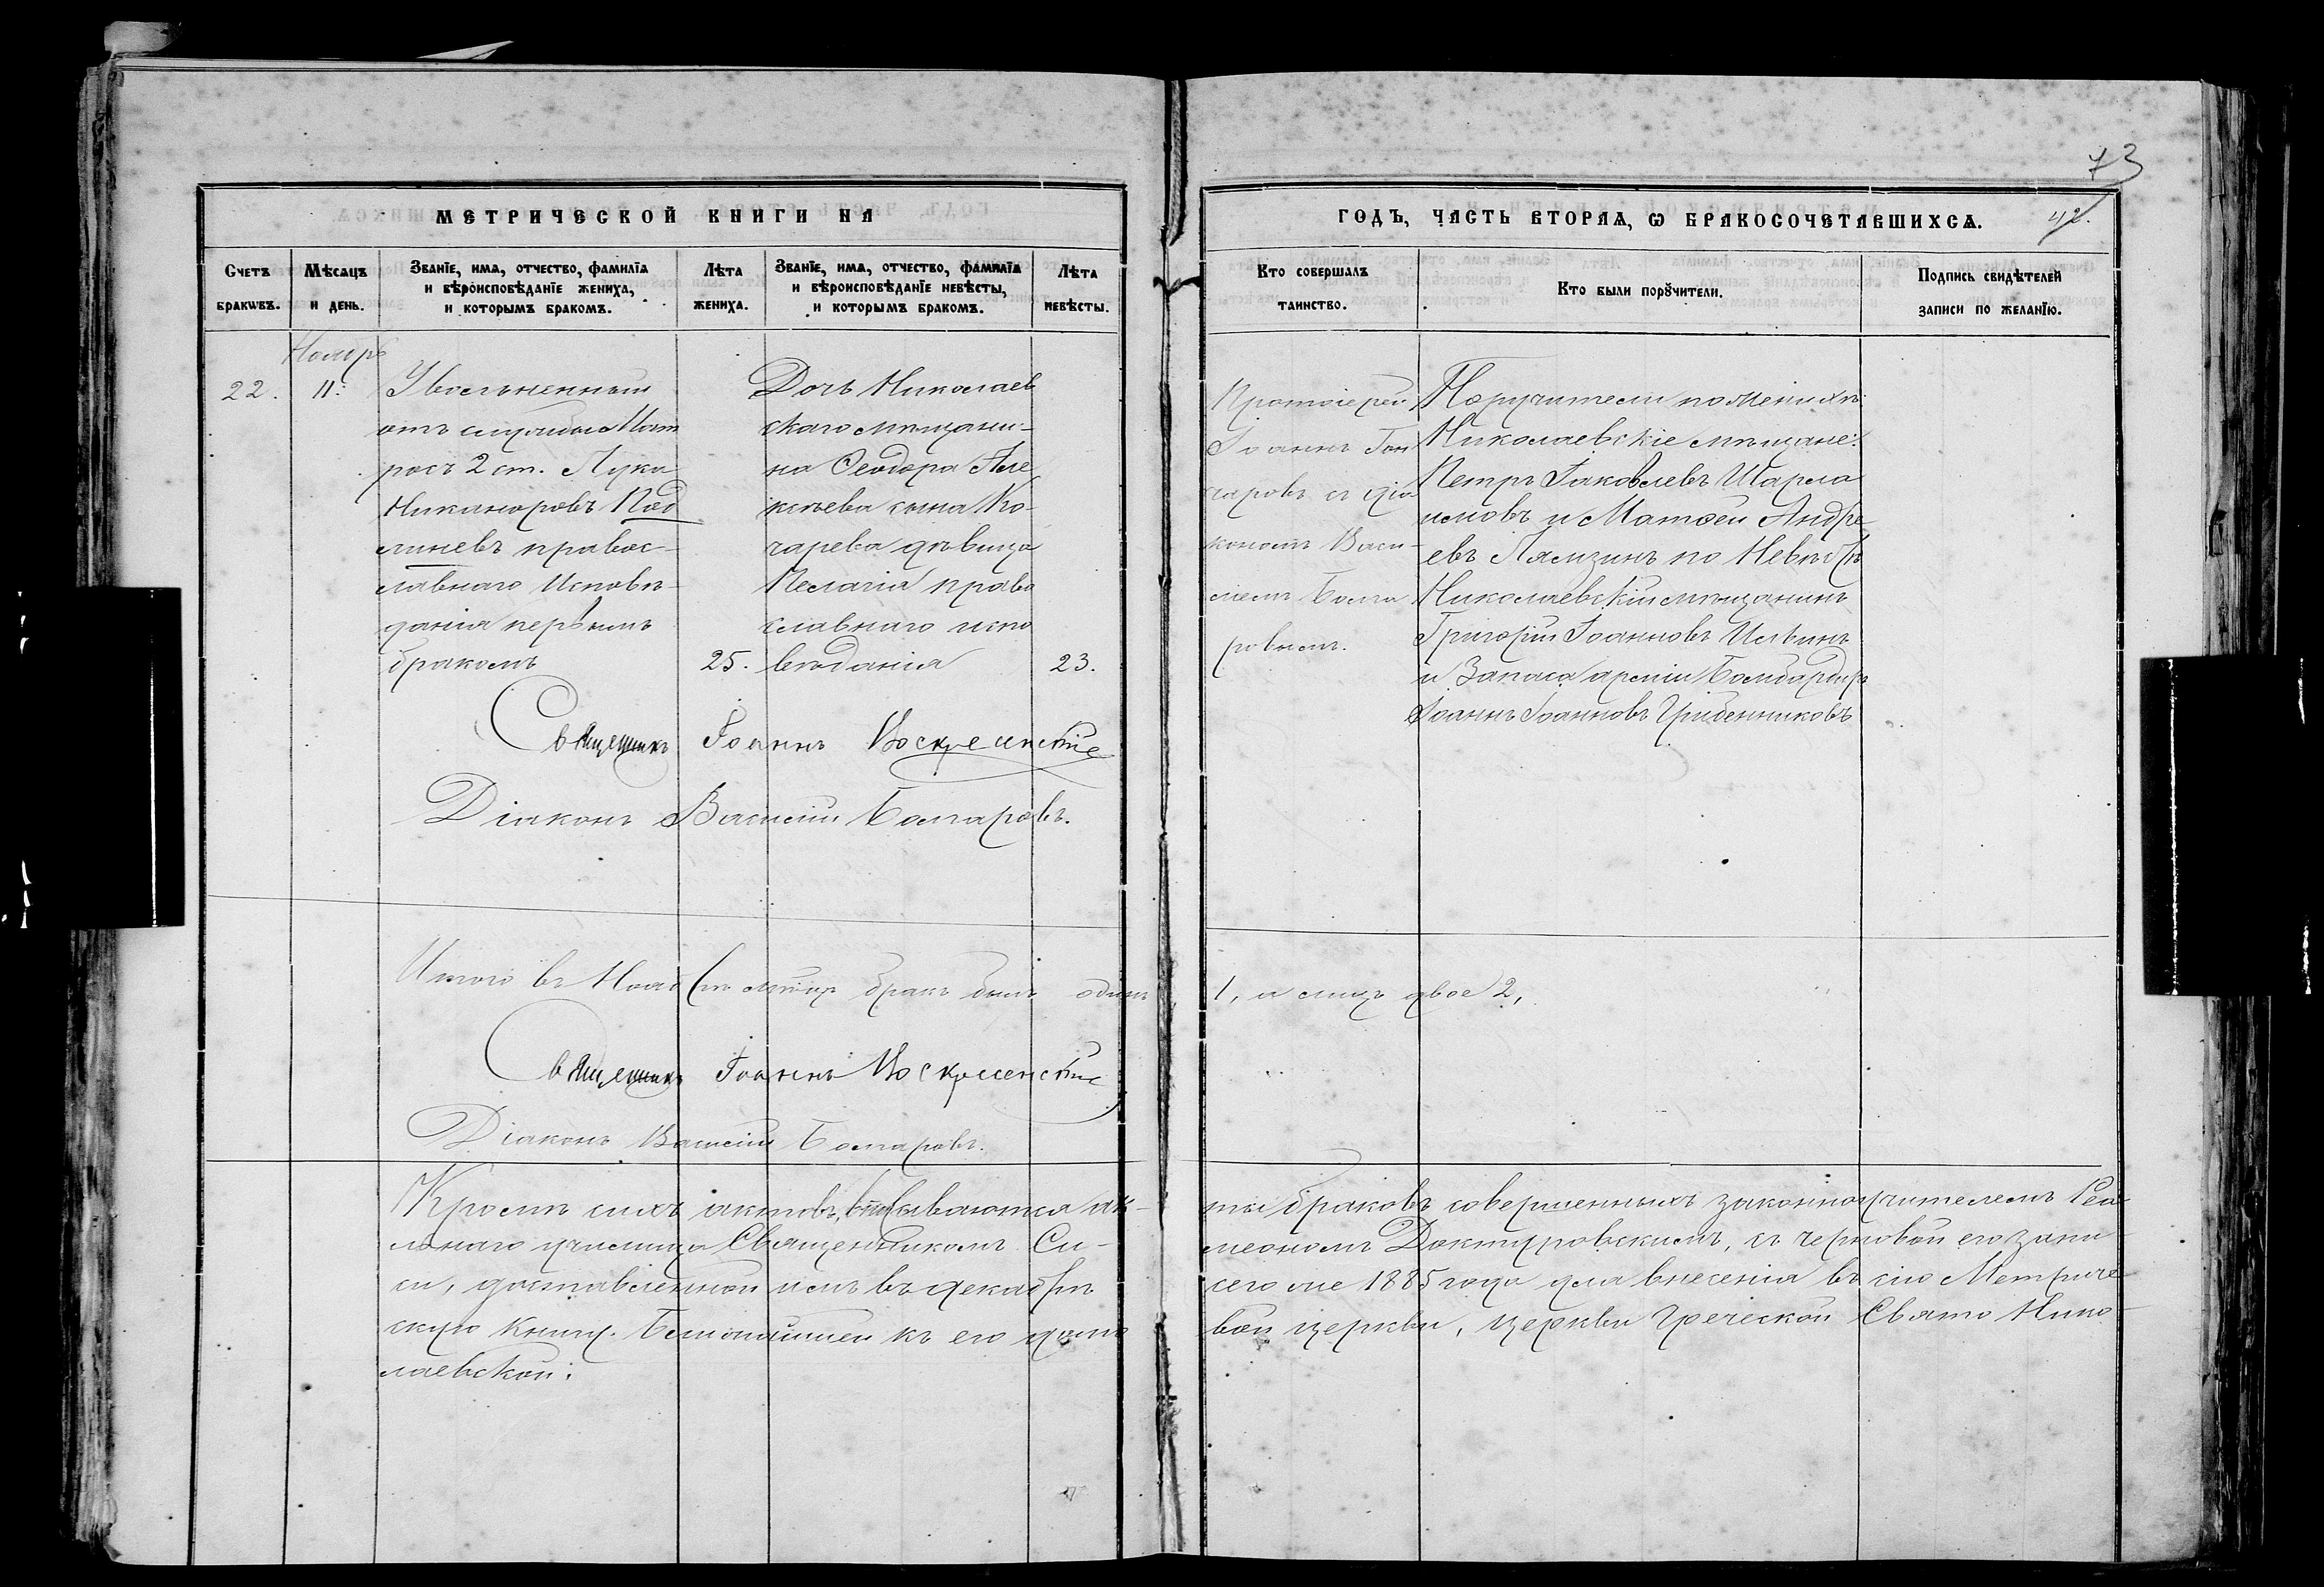 73
МЕТРИЧЕСКОЙ КНИГИ НА
ГОДЪ, ЧАСТЬ ВТОРАѦ, Ѡ БРАКОСОЧЕТАВШИХСѦ.
42.
Счетъ бракѡвъ.
Мѣсѧцъ и день.
Званїе, имѧ, отчество, фамилїѧ
и вѣроисповѣданїе жениха,
и которымъ бракомъ.
Лѣта жениха.
Званїе, имѧ, отчество, фамилїѧ
и вѣроисповѣданїе невѣсты,
и которымъ бракомъ.
Лѣта невѣсты.
Кто совершалъ
таинство.
Кто были порꙋчители.
Подпись свидѣтелей
записи по желанїю.
Ноябрь
22.
11.
Уволъненный
отъ службы Мат
росъ 2 ст. Лука
Никаноровъ Под
линевъ правос-
лавнаго Исповѣ-
данія первымъ
бракомъ
25.
Дочь Николаев
скаго мѣщани-
на Ѳеодора Але
ксѣева сына Ко-
чарева дѣвица
Пелагія право
славнаго испо
вѣданія
23.
Протоіерей
Іоаннъ Гон
чаровъ съ діа
кономъ Васи-
ліемъ Болга
ровымъ.
Поручители по женихѣ:
Николаевскіе мѣщане:
Петръ Іаковлевъ Шарла
имовъ и Матѳей Андре
евъ Лямзинъ по Невѣстѣ
Николаевскій мѣщанинъ
Григорій Іоанновъ Ильинъ
и Запаса арміи Бомбардиръ
Іоаннъ Іоанновъ Грибенниковъ
Священникъ Іоаннъ Воскресенскій
Діаконъ Василій Болгаровъ.
Итого въ Ноябрѣ мѣсяцѣ бракъ былъ одинъ 1, а лицъ двое 2,
Священникъ Іоаннъ Воскресенскій
Діаконъ Василій Болгаровъ.
Кромѣ сихъ актовъ, вписываются ак-ты браковъ совершенныхъ законоучителемъ Реа
льнаго училища Священникомъ Си-меономъ Доктуровскимъ, съ черновой его запи
си, доставленной имъ въ декабрѣ сего же 1885 года для внесенія въ сію Метриче-
скую Книгу. Ближайшей къ его домо вой церкви, церкви Греческой Свято Нико-
лаевской: